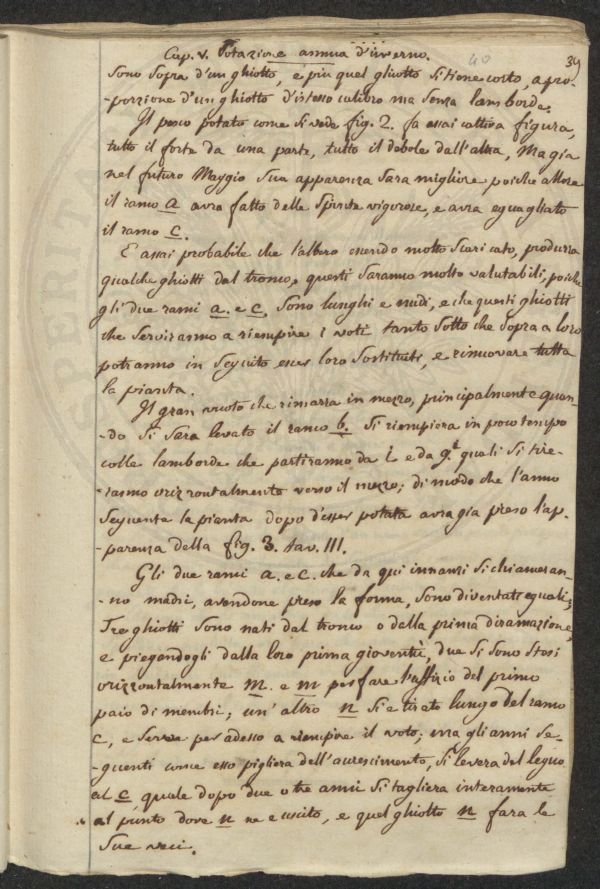 Cap. V. Potazione annua d'inverno.
40
39
sono sopra d'un ghiotto, e più quel ghiotto si tiene corto, a pro-
-porzione d'un ghiotto d'istesso calibro ma senza lamborde.
Il pesco potato come si vede fig. 2. fa assai cattiva figura,
tutto il forte da una parte, tutto il debole dall'altra, Ma gia
nel futuro Maggio sua apparenza sara migliore poiche allora
il ramo a avra fatto delle spinte vigorose, e avra eguagliato
il ramo c.
E assai probabile che l'albero essendo molto scaricato, produrra
qualche ghiotti dal tronco, questi saranno molto valutabili, poiche
gli due rami a. e c. sono lunghi e nudi, e che questi ghiotti
che serviranno a riempire i voti tanto sotto che sopra a loro
potranno in seguito esser loro sostituti, e rinuovare tutta
la pianta.
Il gran vuoto che rimarra in mezzo, principalmente quan-
-do si sara levato il ramo b. si riempiera in poco tempo
colle lamborde che partiranno da i e da g. quali si tire-
-ranno orizzontalmente verso il mezzo; di modo che l'anno
seguente la pianta dopo d'esser potata avra gia preso l'ap-
-parenza della fig. 3. tav. III.
Gli due rami a. e c. che da qui innanzi si chiameran-
-no madri, avendone preso la forma, sono diventati eguali;
Tre ghiotti sono nati dal tronco o dalla prima diramazione,
e piegandogli dalla loro prima gioventù, due si sono stesi
orizzontalmente m. e m per fare l'uffizio del primo
paio di membri; un'altro n si e tirato lungo del ramo
c, e serve per adesso a riempire il voto; ma gli anni se-
-guenti come esso pigliera dell'accrescimento, si levera del legno
al c quale dopo due o tre anni si tagliera interamente
al punto dove n ne e uscito, e quel ghiotto n fara le
sue veci.